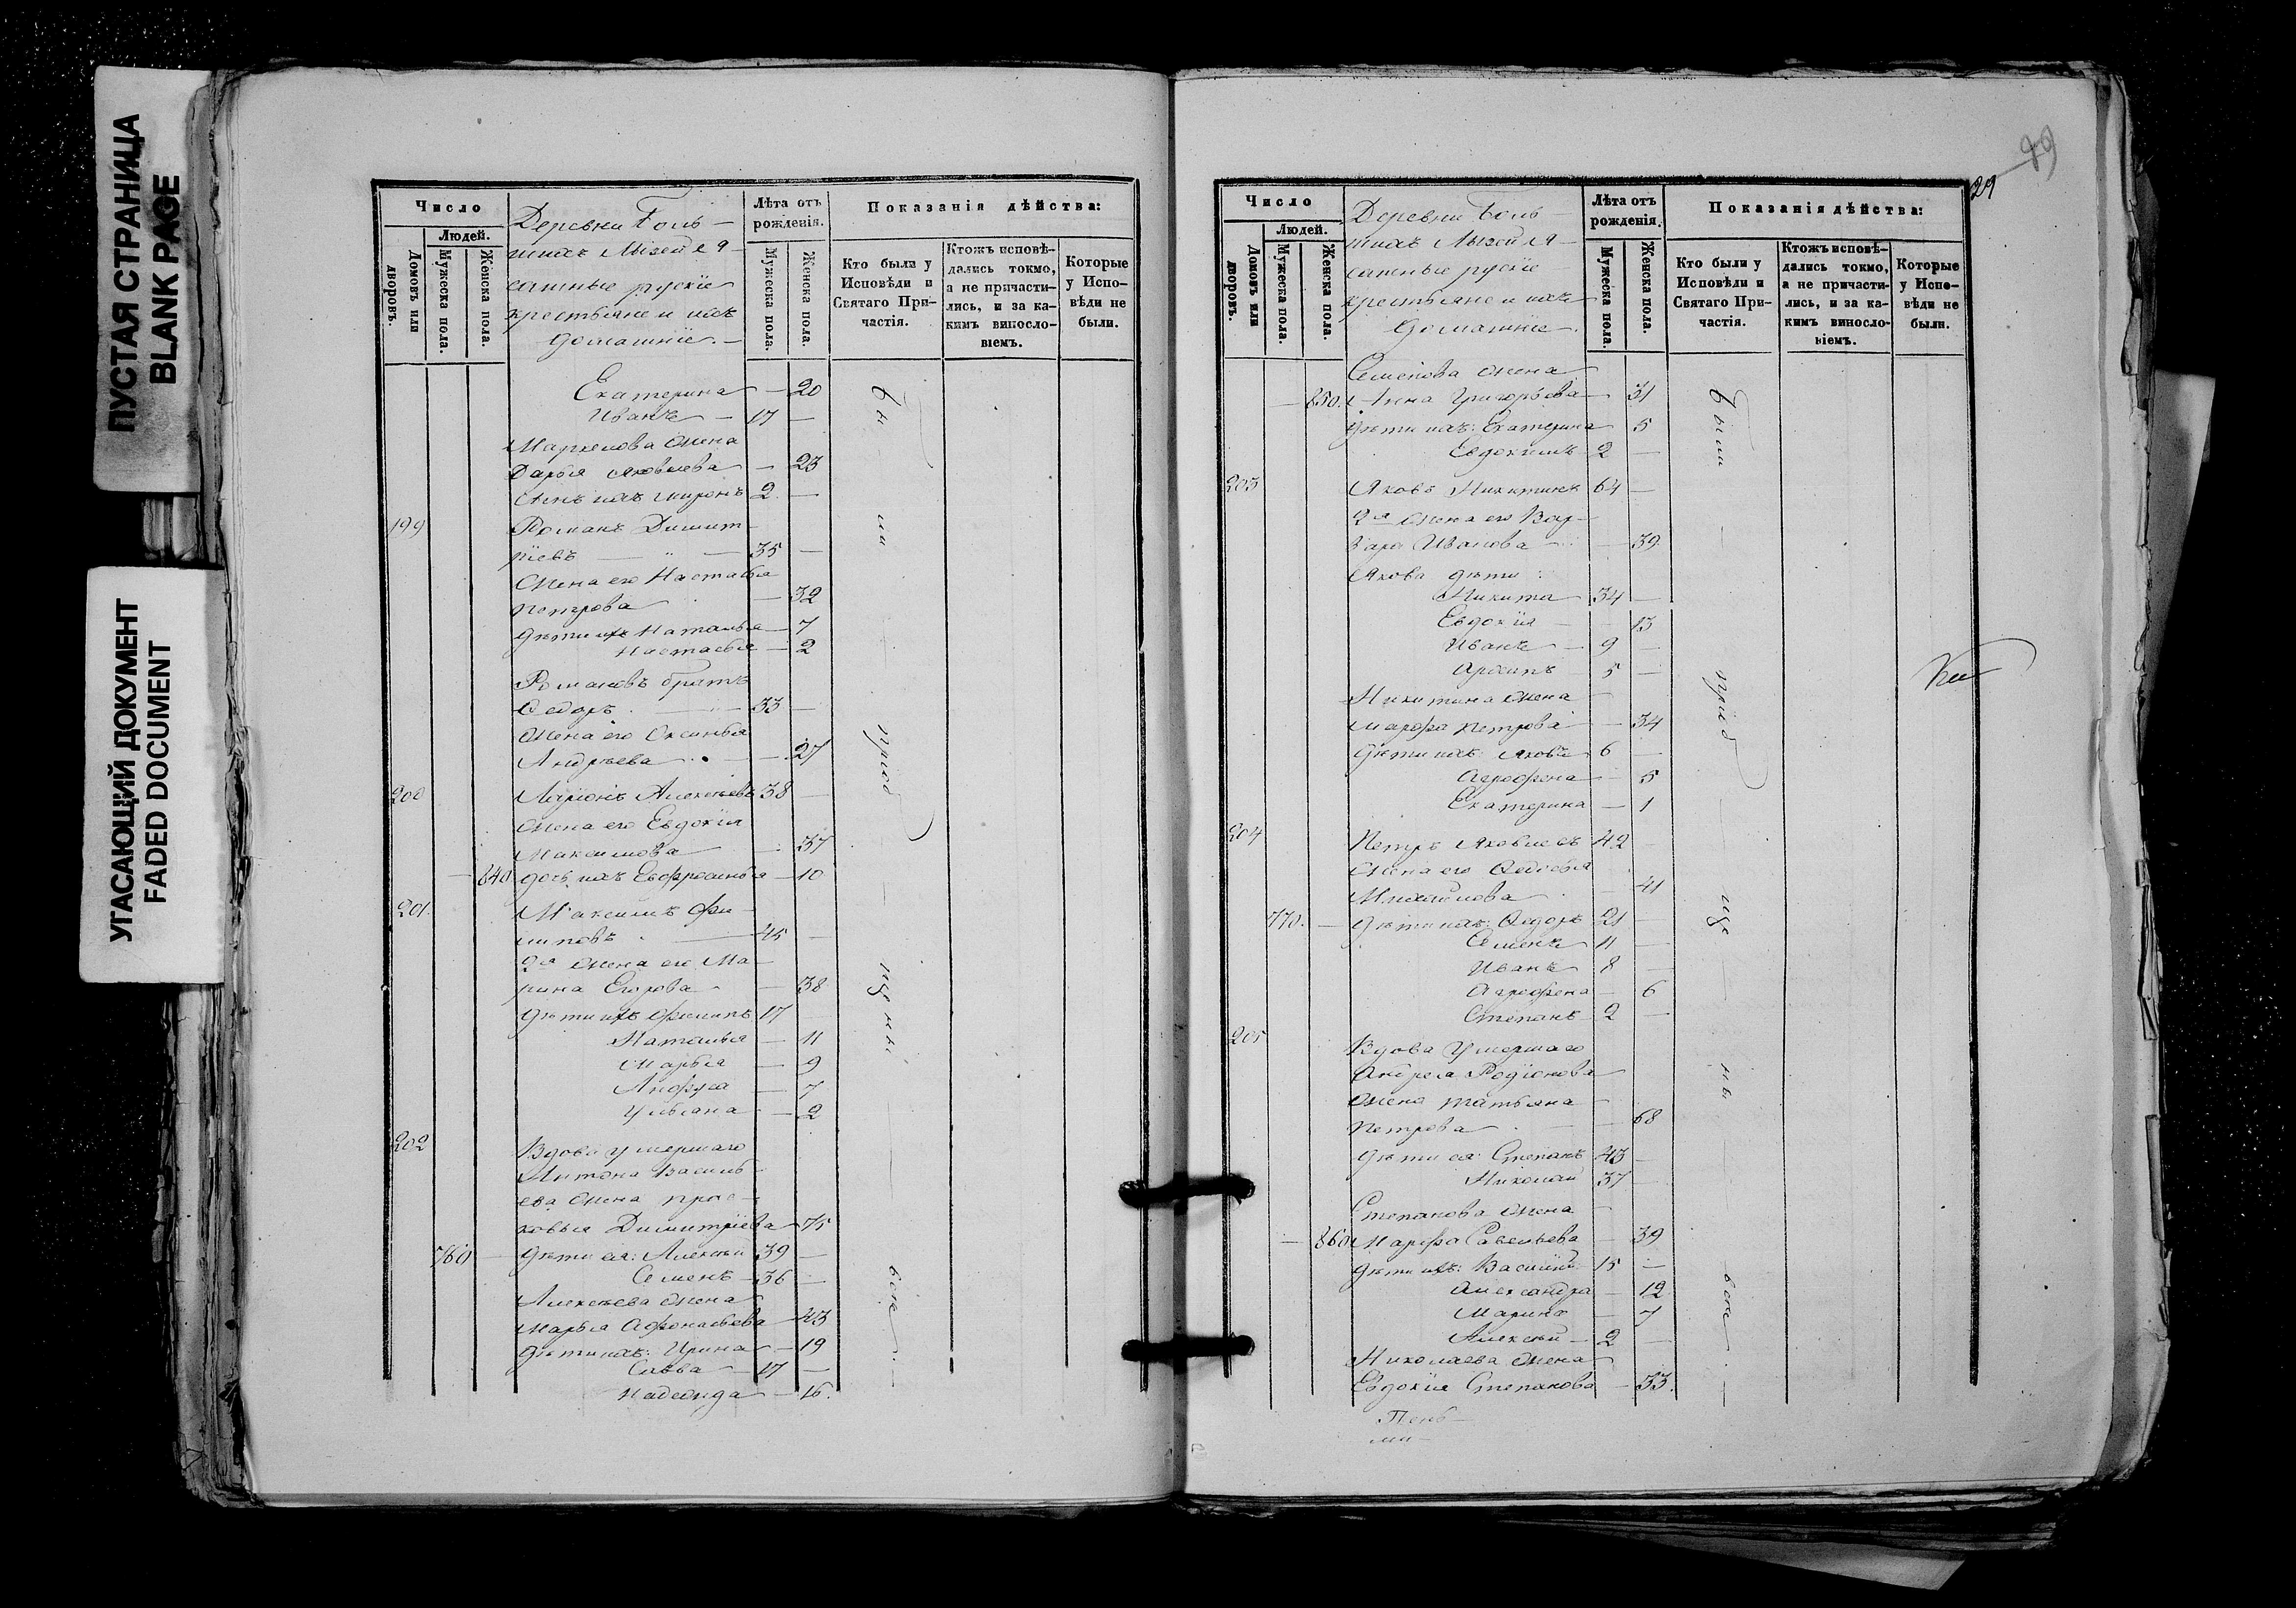 ПУСТАЯ СТРАНИЦА
BLANK PAGE
УГАСАЮЩИЙ ДОКУМЕНТ
FADED DOCUMENT
Число
Людей.
Домовъ или дворовъ.
Мужеска пола.
Женска пола.
Деревни Боль-
шихъ
сашные рускіе
крестьяне и ихъ
домашніе.
Лѣта отъ рожденія.
Мужеска пола.
Женска пола.
Показанія дѣйства:
Кто были у Исповѣди и Святаго Причастія.
Ктожъ исповѣдались токмо, а не причастились, и за какимъ винословіемъ.
Которые у Исповѣди не были.
Екатерина — 20
Иванъ — 17 —
Маркелова жена
Дарья Яковлева — 23
Сынъ ихъ Миронъ 2 —
199 Романъ Димит-
ріевъ — 35 —
Жена его Настасья
Петрова — 32
дѣти ихъ Наталья — 7
Настасья — 2
Романовъ братъ
Ѳедоръ — 33 —
Жена его Оксинья
Андреева — 27
200 Ларіонъ Алексѣевъ 38 —
Жена его Евдокія
Максимова — 37
840 дочь ихъ Евфросинья — 10
201. Максимъ Фи-
липовъ — 45 —
2я жена его Ма-
рина Егорова — 38
дѣти ихъ Филипъ 17
Наталья — 11
Марья — 9
Анфуса — 7
Ульяна — 2
202 Вдова умершаго
Антона Василь-
ева жена Прас-
ковья Димитріева 75
760 — дѣти ея: Алексѣй 39 —
Семенъ 36 —
Алексѣева жена
Марья Афонасьева 43
дѣти ихъ: Ирина — 19
Савва — 17 —
Надежда — 16.
бы
ли
при
ще
ны
всѣ
29
Число
Людей.
Домовъ или дворовъ.
Мужеска пола.
Женска пола.
Деревни Боль-
шихъ
сашные рускіе
крестьяне и ихъ
домашніе.
Лѣта отъ рожденія.
Мужеска пола.
Женска пола.
Показанія дѣйства:
Кто были у Исповѣди и Святаго Причастія.
Ктожъ исповѣдались токмо, а не причастились, и за какимъ винословіемъ.
Которые у Исповѣди не были.
Семенова жена
— 850. Анна Григорьева — 31
дѣти ихъ: Екатерина 5
Евдокимъ 2 —
203 Яковъ Никитинъ 64 —
2я жена его Вар-
вара Иванова — 39.
Якова дѣти:
Никита 34 —
Евдокія — 13
Иванъ — 9 —
Архипъ — 5 —
Никитина жена
Марфа Петрова — 34
дѣти ихъ: Яковъ 6 —
Агрофена — 5
Екатерина — 1
204 Петръ Яковлевъ 42
Жена его Ѳедосья
Михайлова — 41
770. — дѣти ихъ: Ѳедоръ 21 —
Семенъ 11 —
Иванъ 8 —
Агрофена — 6
Степанъ 2 —
205 Вдова умершаго
Андрея Родіонова
жена Татьяна
Петрова — 68
дѣти ея: Степанъ 43 —
Николай 37 —
Степанова жена
— 860 Марфа Савельева — 39
дѣти ихъ: Василій 15 —
Александра — 12
Марина — 7
Алексѣй — 2 —
Николаева жена
Евдокія Степанова — 33.
были
при
ще
ны
всѣ